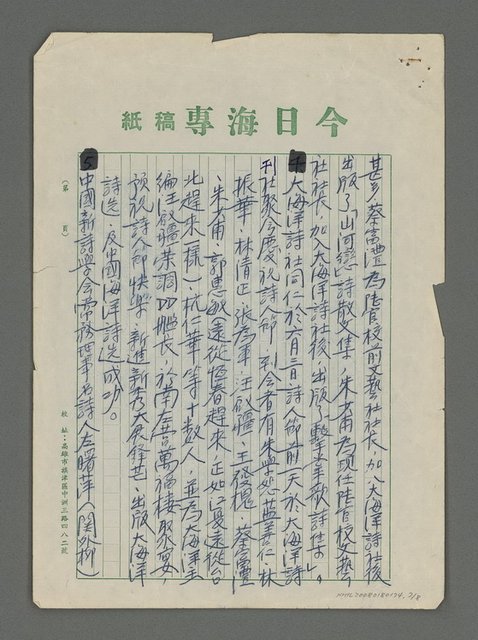 今日海專稿紙
甚多,蔡富澧為陸官校前文藝社社長,加入大海洋詩社後
出版了「山河戀」詩散文集,朱少甫為現任陸官校文藝
社社長,加入大海洋詩社後,出版了擊掌歌詩集」。
4大海洋詩社同仁於六月二日,詩人節前一天於大海洋詩
刊社聚會慶祝詩人節,到會者有朱學恕、藍善仁、林
振華、林清正、張為軍、汪啟疆、王發槐、蔡富澧
、朱少甫、郭惠 遠從恆春趕來,正如 遠從台
北趕來一樣)杭仁華等十數人,並為大海洋主
編汪啟疆榮調 艦長,於南左營萬福樓聚宴,
預祝詩人節快樂,新進新秀大展鋒芒,出版大海洋
詩選,及中國海洋詩選成功。
5中國新詩學會常務理事名詩人左曙萍(關外柳)
(第 頁)
校址:高雄市旗津區中洲三路四八二號
NMTL20080180174. 7/8